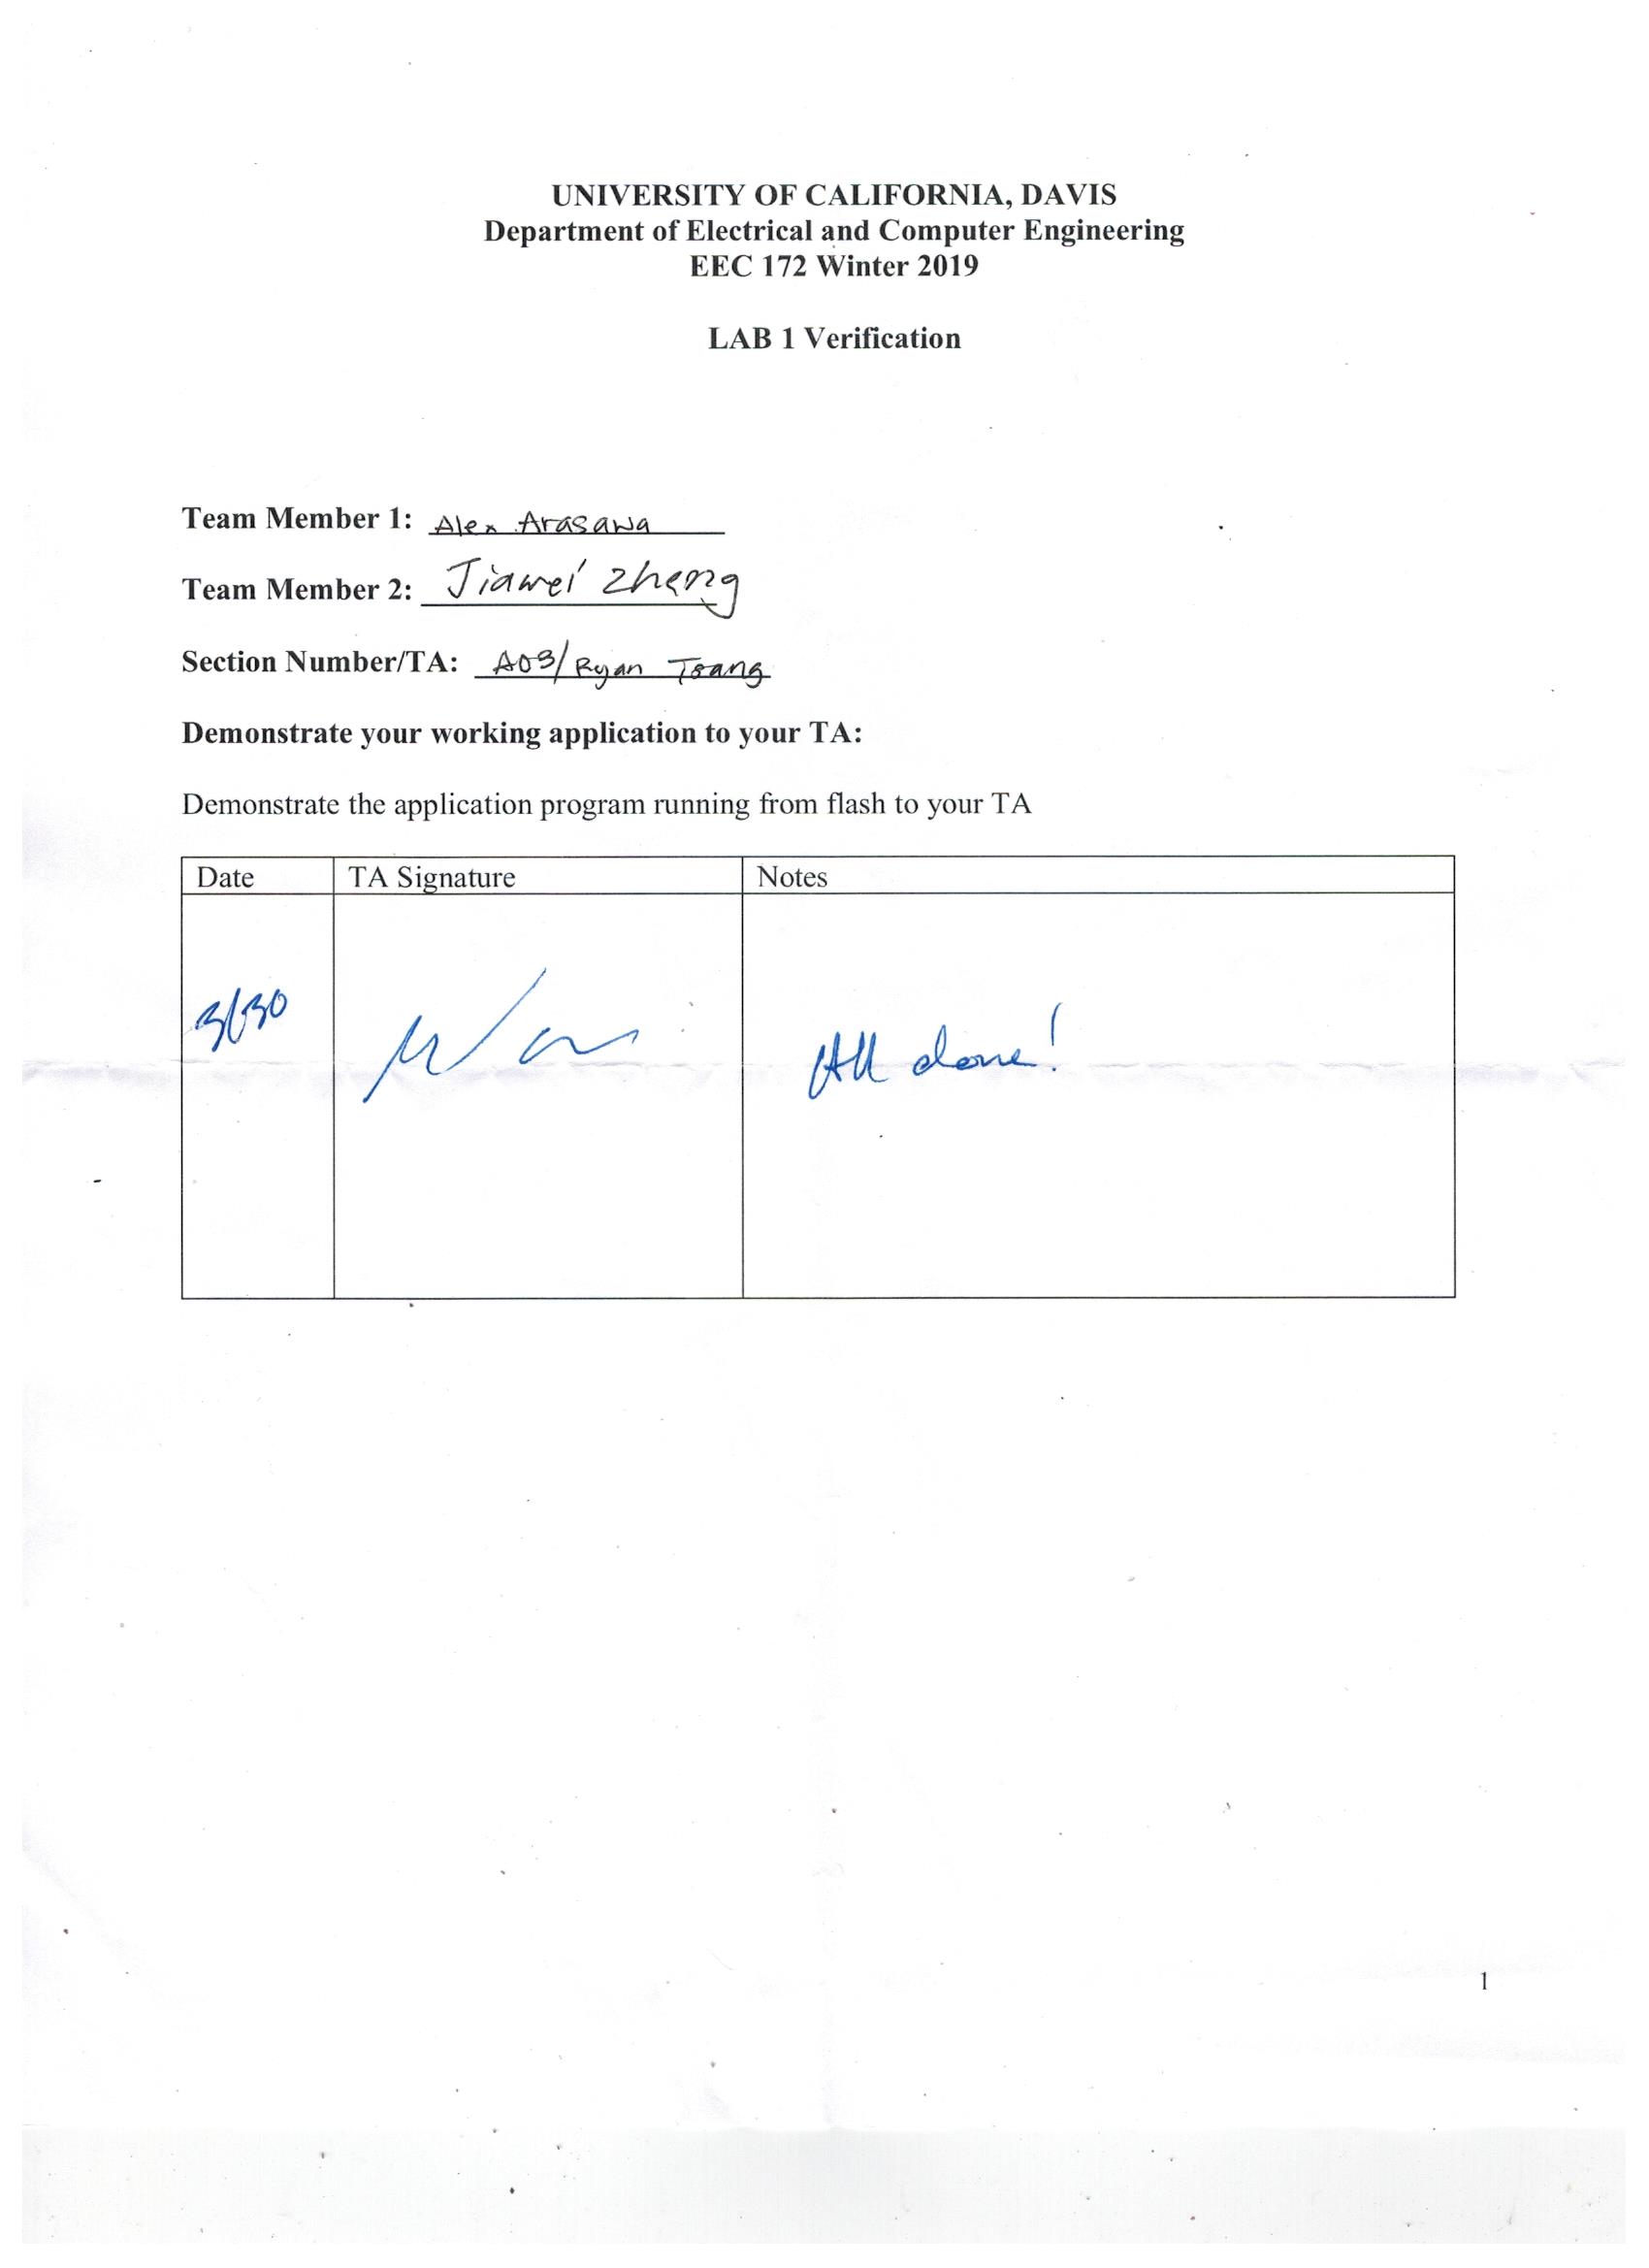 UNIVERSITY OF CALIFORNIA, DAVIS
Department of Electrical and Computer Engineering
EEC 172 Winter 2019
LAB 1 Verification
Team Member 1: Alex Arasawa
Team Member 2: Jiawei Zheng
Section Number/TA: A03/Ryan Tsang
Demonstrate your working application to your TA:
Demonstrate the application program running from flash to your TA
Date TA Signature Notes
3/30 All done!
1